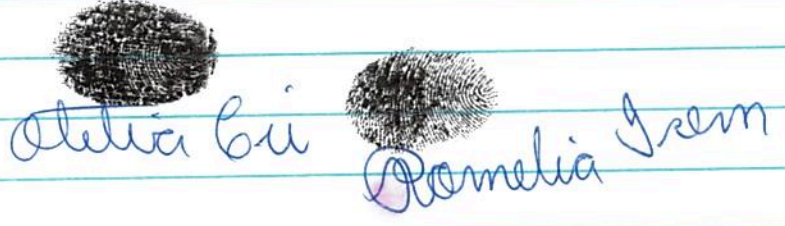 Otilia Cú
Romelia Isem